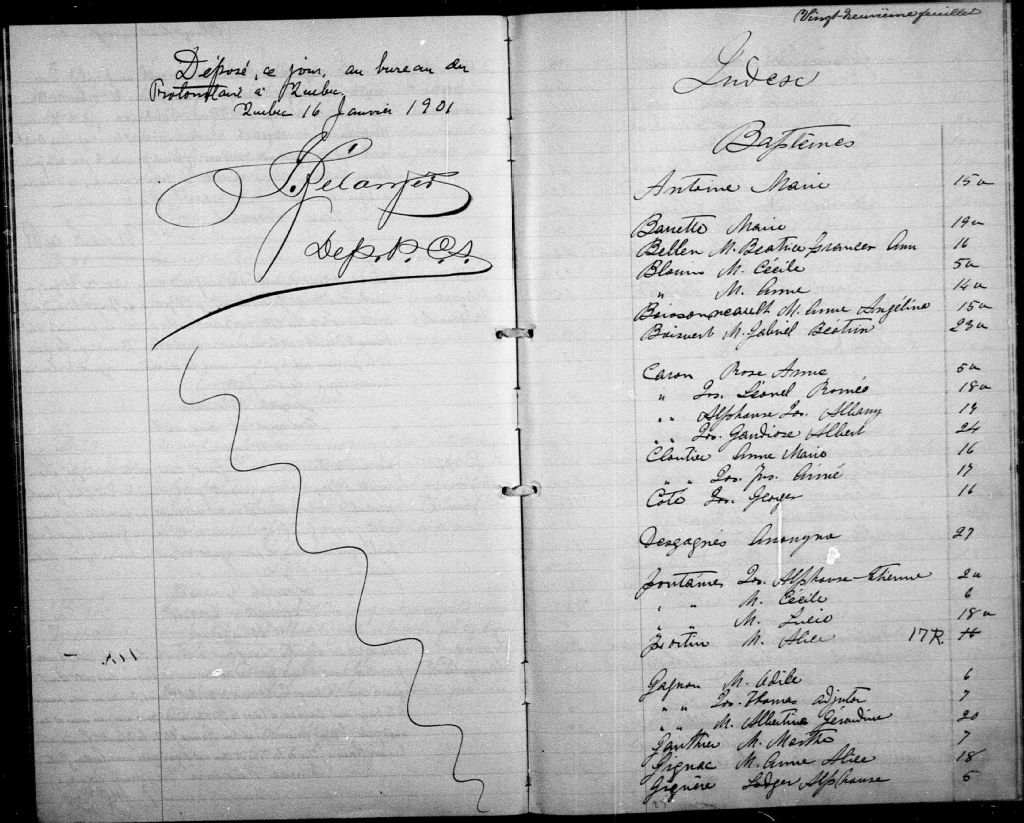 Déposé, ce jour, au bureau du
Protonotaire à Québec.
Québec 16 Janvier 1901
Dep. P. C. S.
Vingt-neuvième feuillet
Index
Baptêmes
Antoine Marie 15a
Barrette Marie 19a
Bellen M. Beatrice Frances Ann 16
Blouin M. Cécile 5a
" M. Anne 14a
Boissonneault M. Anne Angélina 15a
Boisvert M. Gabriel Béatrix 23a
Caron Rose Anna 5a
" Jos. Léonel Roméo 18a
" " Alphonse Jos. Albany 19
" " Jos. Gaudiose Albert 24
Cloutier Anne Marie 16
" " Jos. Frs. Aimé 17
Coté Jos. Georges 16
Desgagnés Anonyme 27
Fontaine Jos. Alphonse-Etienne 2a
" " M. Cécile 6
" " M. Lucie 18a
Fortin M. Alice 17R.
Gagnon M. Odile 6
" " Jos. Thomas Adjutor 7
" " M. Albertine Géraldine 20
Gauthier M. Marthe 7
Gignac M. Anne Alice 18
Giguère Ledger Alphonse 5